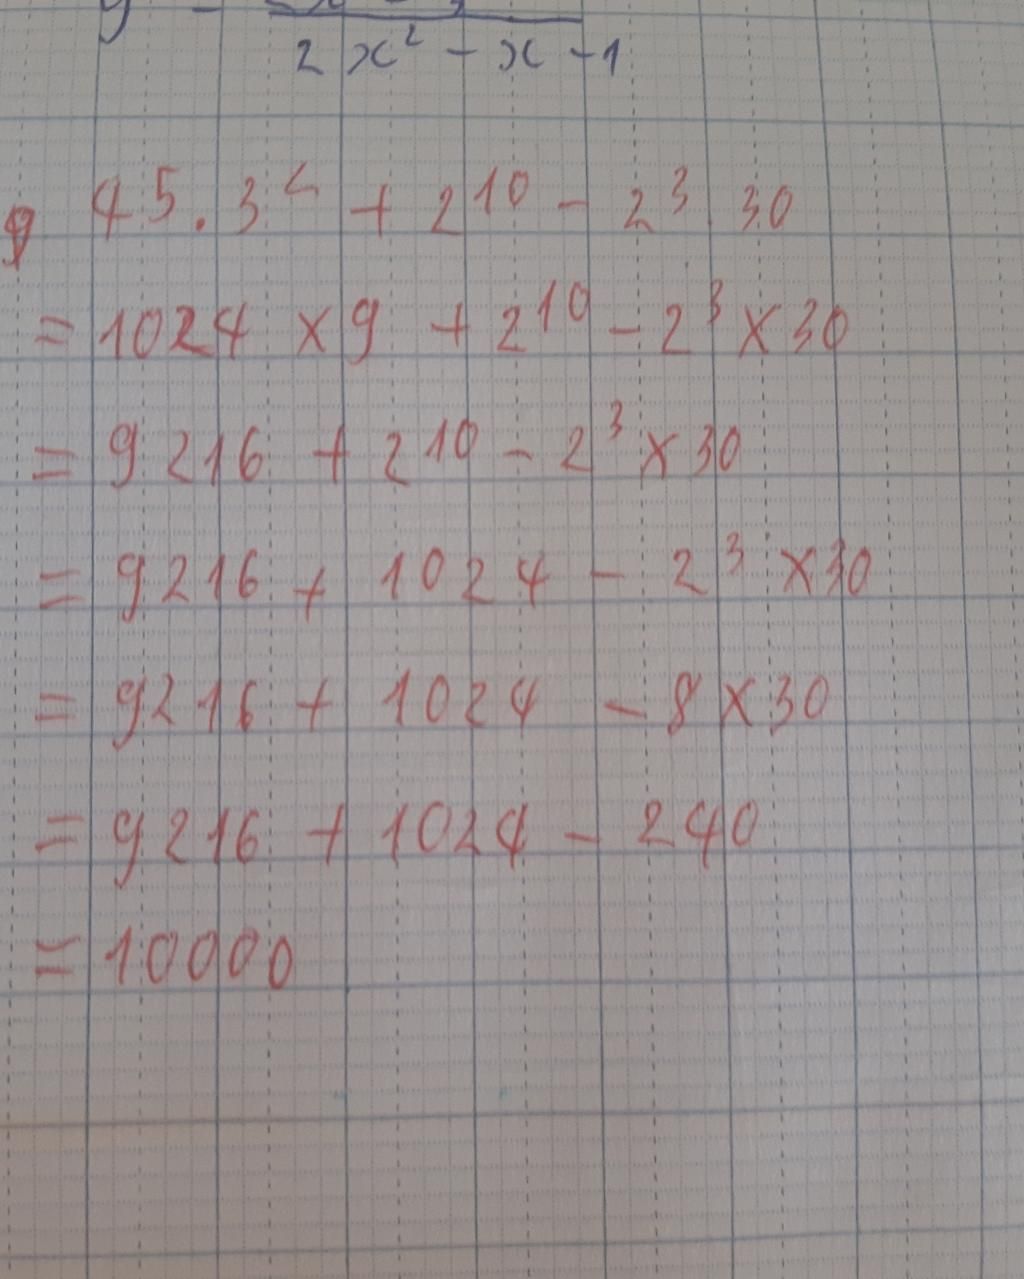 2x² - x - 1
4⁵ . 3² + 2¹⁰ - 2³ . 30
= 1024 × 9 + 2¹⁰ - 2³ × 30
= 9216 + 2¹⁰ - 2³ × 30
= 9216 + 1024 - 2³ × 30
= 9216 + 1024 - 8 × 30
= 9216 + 1024 - 240
= 10000